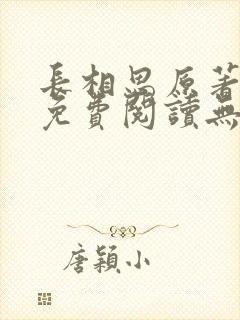 長相思原著
免費閱讀無
唐穎小